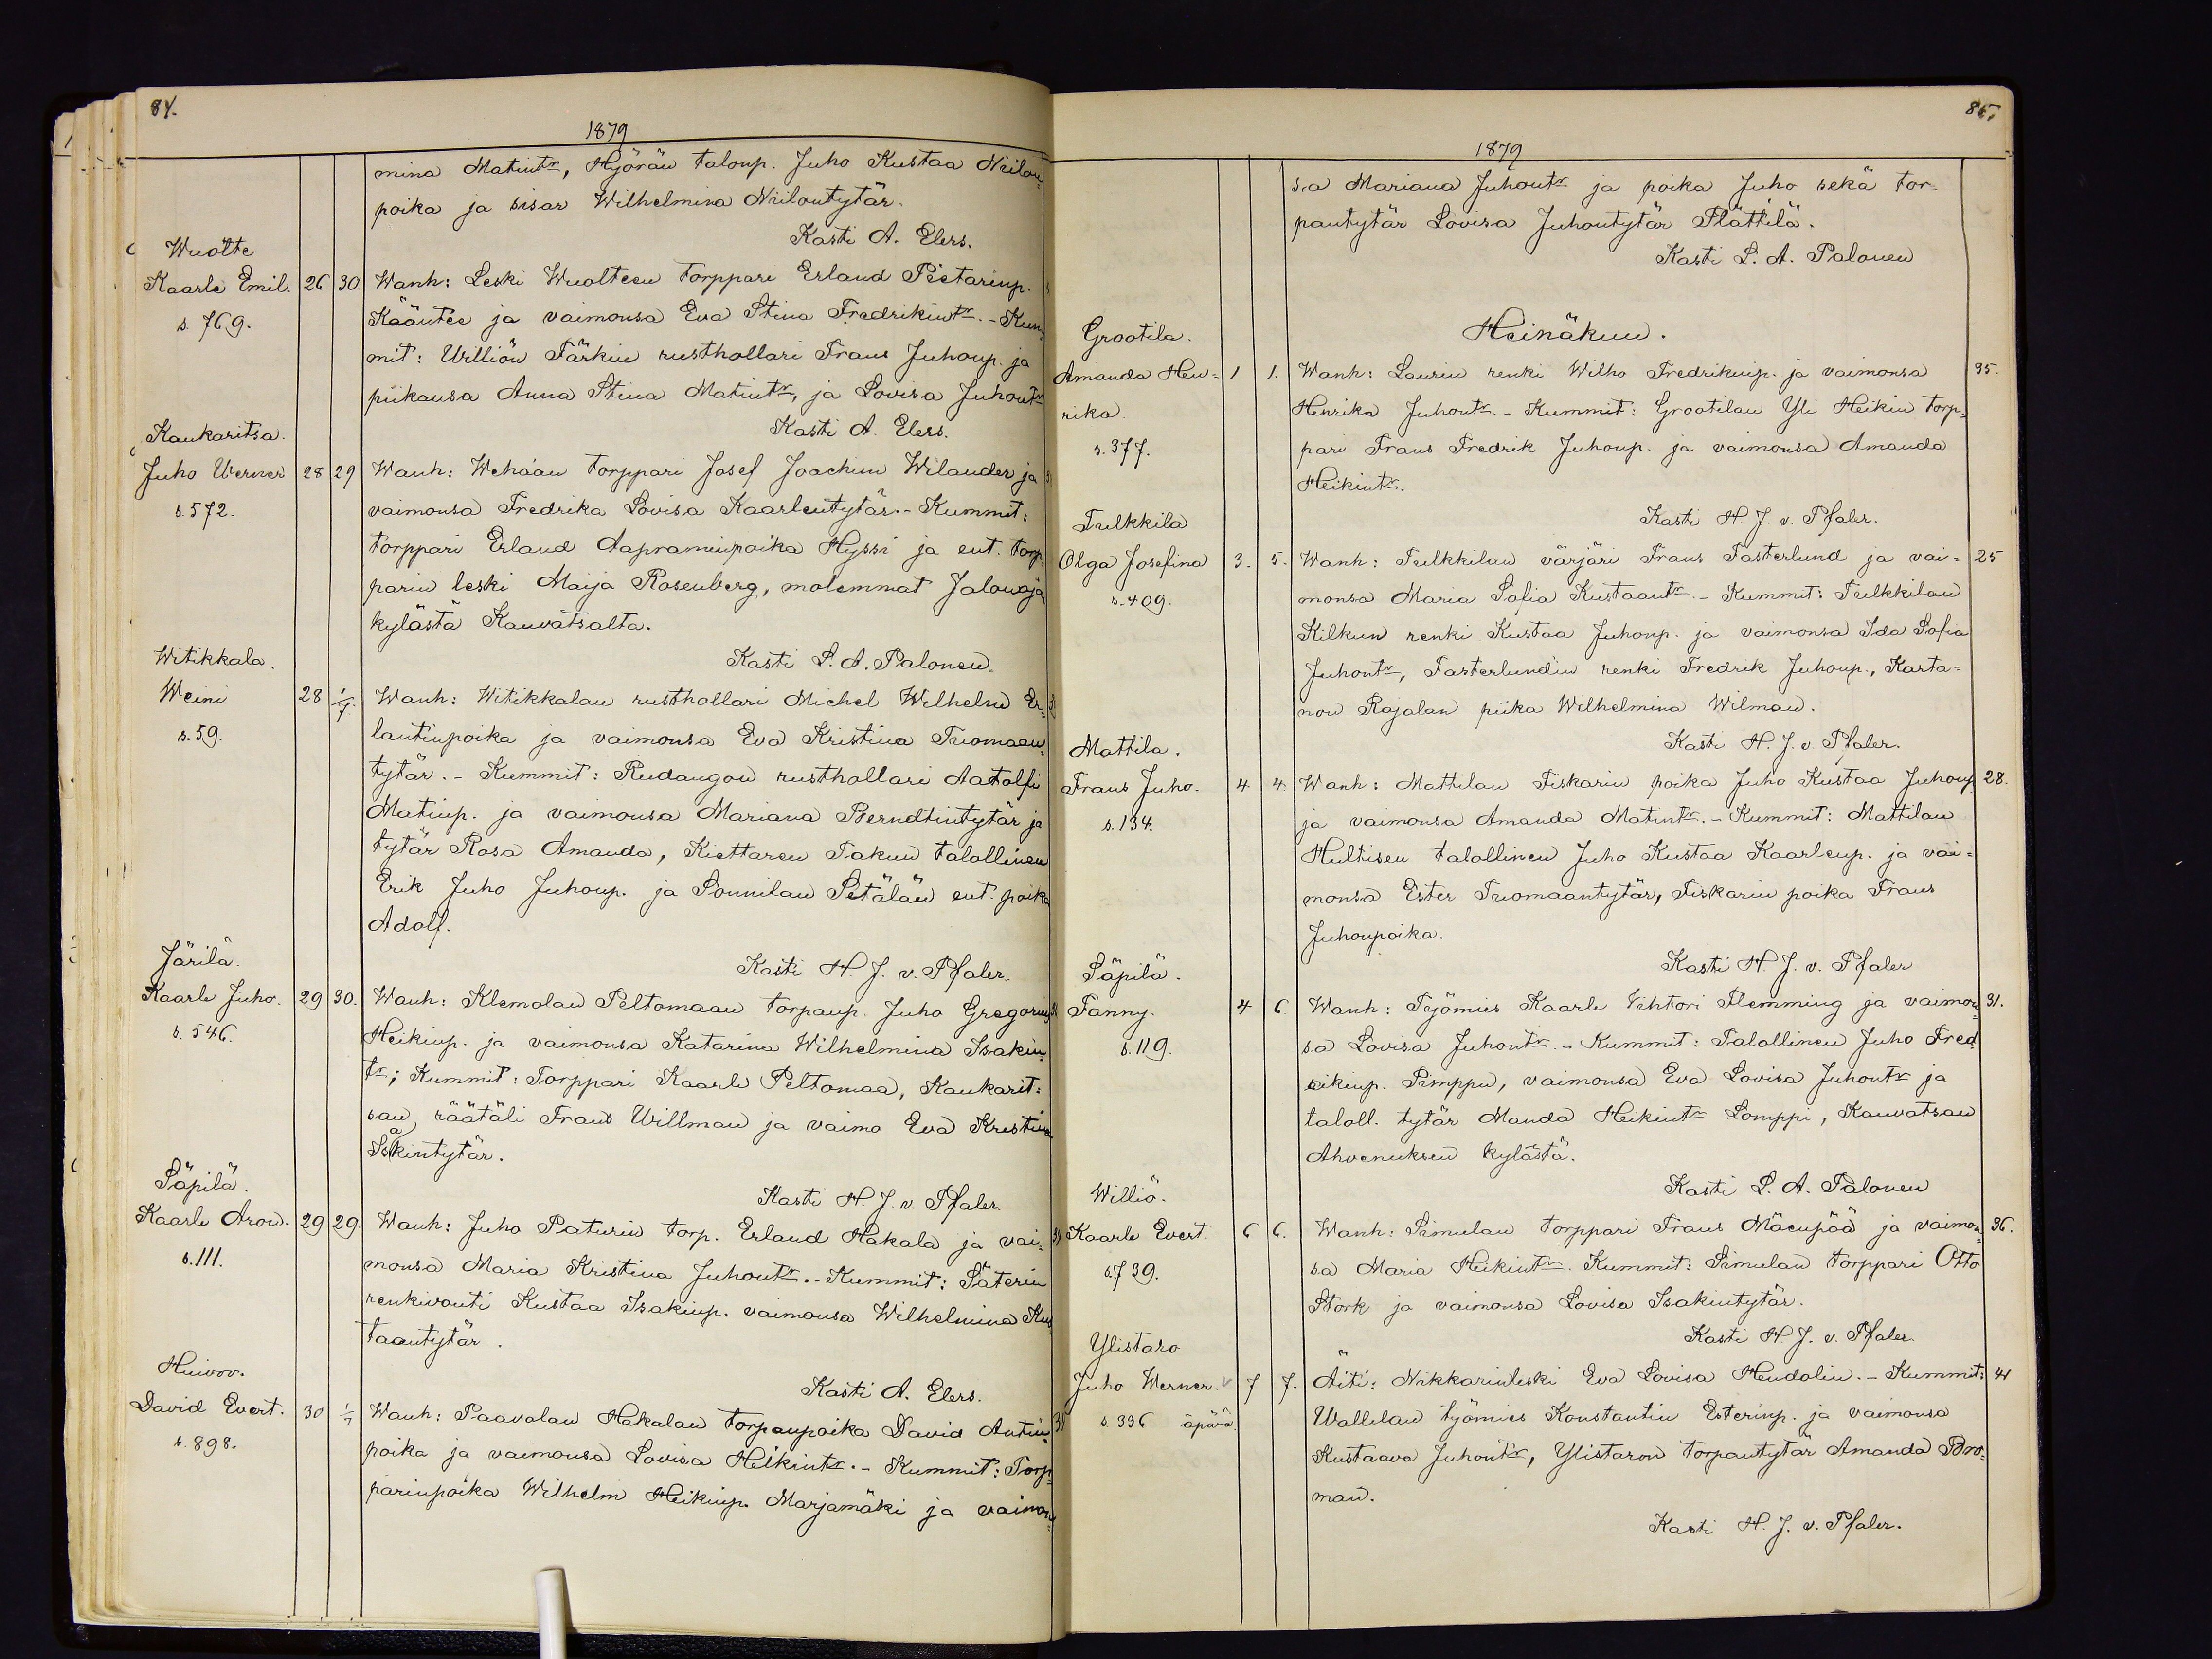 84.
1879
mina Matintr, Hyörän taloup. Juho Kustaa Niilon-
poika ja sisar Wilhelmina Niilontytär.
Kasti A. Elers.
Wuolte
Kaarle Emil. 26 30. Wanh: Leski Wuolteen torppari Erland Pietarinp.
s. 769. Kääntee ja vaimonsa Eva Stina Fredrikintr. - Kum-
mit: Williön Färkin rusthollari Frans Juhonp. ja
piikansa Anna Stina Matintr, ja Lovisa Juhontr
Kasti A. Elers.
Kaukaritsa.
Juho Werner 28 29 Wanh: Wehään torppari Josef Joachim Wilander ja
s. 572. vaimonsa Fredrika Lovisa Kaarlentytär. - Kummit:
torppari Erland Aapraminpoika Hyssi ja ent. torp-
parin leski Maija Rosenberg, molemmat Jalonoja
kylästä Kauvatsalta.
Kasti L. A. Palonen.
Witikkala.
Weini 28 1/7. Wanh: Witikkalan rusthollari Michel Wilhelm Er-
s. 59. lantinpoika ja vaimonsa Eva Kristina Tuomaan-
tytär. - Kummit: Rudangon rusthollari Aatolfi
Matinp. ja vaimonsa Mariana Berndtintytär ja
tytär Rosa Amanda, Kiettaren Takun talollinen
Erik Juho Juhonp. ja Sonnilan Setälän ent. poika
Adolf.
Kasti H. J. v. Pfaler.
Järilä.
Kaarle Juho. 29 30. Wanh: Klemolan Peltomaan torpanp. Juho Gregorius
s. 546. Heikinp. ja vaimonsa Katarina Wilhelmina Isakin-
tr; Kummit: Torppari Kaarle Peltomaa, Kaukarit-
san räätäli Frans Willman ja vaimo Eva Kristina
Isakintytär.
Kasti H. J. v. Pfaler.
Säpilä.
Kaarle Aron. 29 29. Wanh: Juho Paturin torp. Erland Hakala ja vai-
s. 111. monsa Maria Kristina Juhontr. - Kummit: Säterin
renkivouti Kustaa Isakinp. vaimonsa Wilhelmina Kus
taantytär.
Kasti A. Elers.
Huivoo.
David Evert. 30 1/7 Wanh: Paavolan Hakalan torpanpoika David Antin-
s. 898. poika ja vaimonsa Lovisa Heikintr. - Kummit: Torp-
parinpoika Wilhelm Heikinp. Marjamäki ja vaimon-
85.
1879
sa Mariana Juhontr ja poika Juho sekä tor-
pantytär Lovisa Juhontytär Plättilä.
Kasti L. A. Palonen
Heinäkuu.
Grootila.
Amanda Hen- 1 1. Wanh: Laurin renki Wilho Fredrikinp. ja vaimonsa 35.
rika. Henrika Juhontr. - Kummit: Grootilan Yli Heikin torp-
s. 377. pari Frans Fredrik Juhonp. ja vaimonsa Amanda
Heikintr.
Kasti H. J. v. Pfaler.
Tulkkila
Olga Josefina 3. 5. Wanh: Tulkkilan värjäri Frans Fasterlund ja vai- 25
s. 409. monsa Maria Sofia Kustaantr. - Kummit: Tulkkilan
Kilkun renki Kustaa Juhonp. ja vaimonsa Ida Sofia
Juhontr, Fasterlundin renki Fredrik Juhonp., Karta-
non Rajalan piika Wilhelmina Wilman.
Kasti H. J. v. Pfaler.
Mattila.
Frans Juho. 4 4. Wanh: Mattilan Fiskarin poika Juho Kustaa Juhonp. 28.
s. 134. ja vaimonsa Amanda Matintr. - Kummit: Mattilan
Hultisen talollinen Juho Kustaa Kaarlenp. ja vai-
monsa Ester Tuomaantytär, Fiskarin poika Frans
Juhonpoika.
Kasti H. J. v. Pfaler
Säpilä.
Fanny. 4 6. Wanh: Työmies Kaarle Vihtori Flemming ja vaimon- 31.
s. 119. sa Lovisa Juhontr. - Kummit: Talollinen Juho Fred
rikinp. Pimppu, vaimonsa Eva Lovisa Juhontr ja
taloll. tytär Manda Heikintr Lomppi, Kauvatsan
Ahvenuksen kylästä.
Kasti L. A. Palonen
Williö.
Kaarle Evert. 6 6. Wanh: Simulan torppari Frans Mäenpää ja vaimon- 36.
s. 739. sa Maria Heikintr. Kummit: Simulan torppari Otto
Stork ja vaimonsa Lovisa Isakintytär.
Kasti H. J. v. Pfaler.
Ylistaro
Juho Werner. 7 7. Äiti: Nikkarinleski Eva Lovisa Hendolin. - Kummit: 41
s. 396 äpärä. Wallilan työmies Konstantin Esterinp. ja vaimonsa
Kustaava Juhontr, Ylistaron torpantytär Amanda Bro-
man.
Kasti H. J. v. Pfaler.